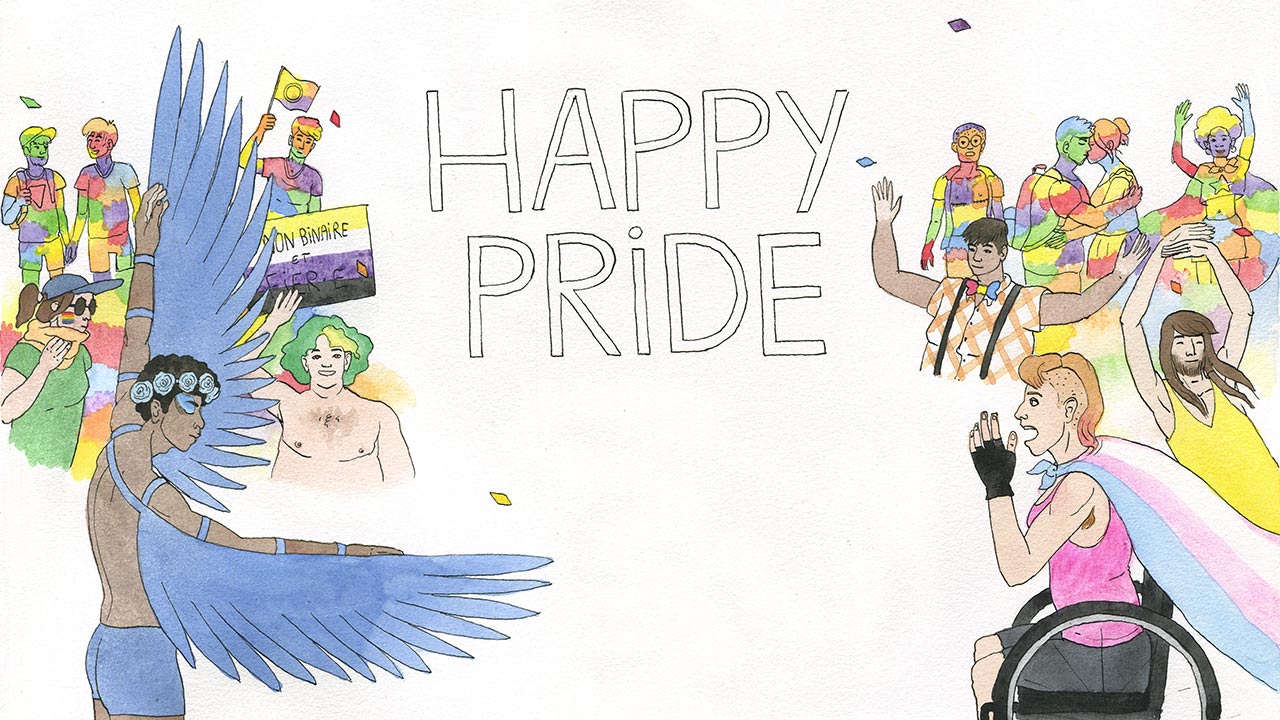 HAPPY
PRiDE
NON BiNAIRE
ET